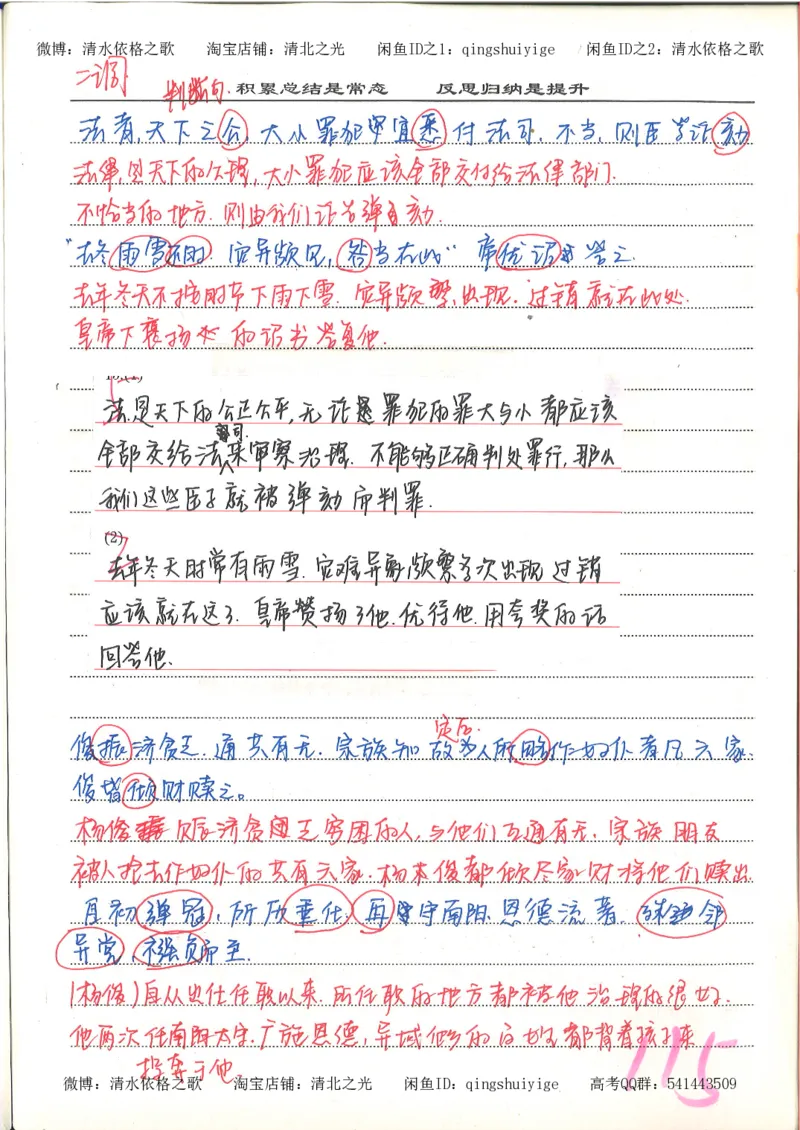 微博：清水依格之歌 淘宝店铺：清北之光 闲鱼ID之1：qingshuiyige 闲鱼ID之2：清水依格之歌
二调
判断句. 积累总结是常态 反思归纳是提升
法者,天下之公,大小罪犯审宜悉付法司.不当,则臣等论劾
法律,是天下的公理,大小罪犯应该全部交付给法律部门.
不恰当的地方.则由我们论着弹劾.
"去冬雨雪不时.灾异频见,咎当在此"帝优诏答之.
去年冬天不按时节下雨下雪.灾异频繁出现.过错就在此处.
皇帝下褒扬的诏书答复他.
法是天下的公正公平,无论是罪犯的罪大与小都应该
全部交给法司来审察治理.不能够正确判处罪行,那么
我们这些臣子就被弹劾而判罪.
(2)
去年冬天时常有雨雪.灾难异象频繁多次出现过错
应该就在这了.皇帝赞扬了他.优待他.用夸奖的话
回答他.
俊振济贫乏.通共有无.宗族知故为人所略作奴仆者凡六家.
俊皆倾财赎之。
杨俊赈济贫乏穷困的人,与他们互通有无.宗族朋友
被人抢去作奴仆的共有六家.杨俊都倾尽家财将他们赎出
自初弹冠,所历垂化,再守南阳.恩德流著.殊邻
异党,襁负而至.
(杨俊)自从出仕任职以来.所任职的地方都被他治理的很好.
他两次任南阳太守.广施恩德,异域他乡的百姓都背着孩子来
投奔于他.
115
微博：清水依格之歌 淘宝店铺：清北之光 闲鱼ID：qingshuiyige 高考QQ群：541443509